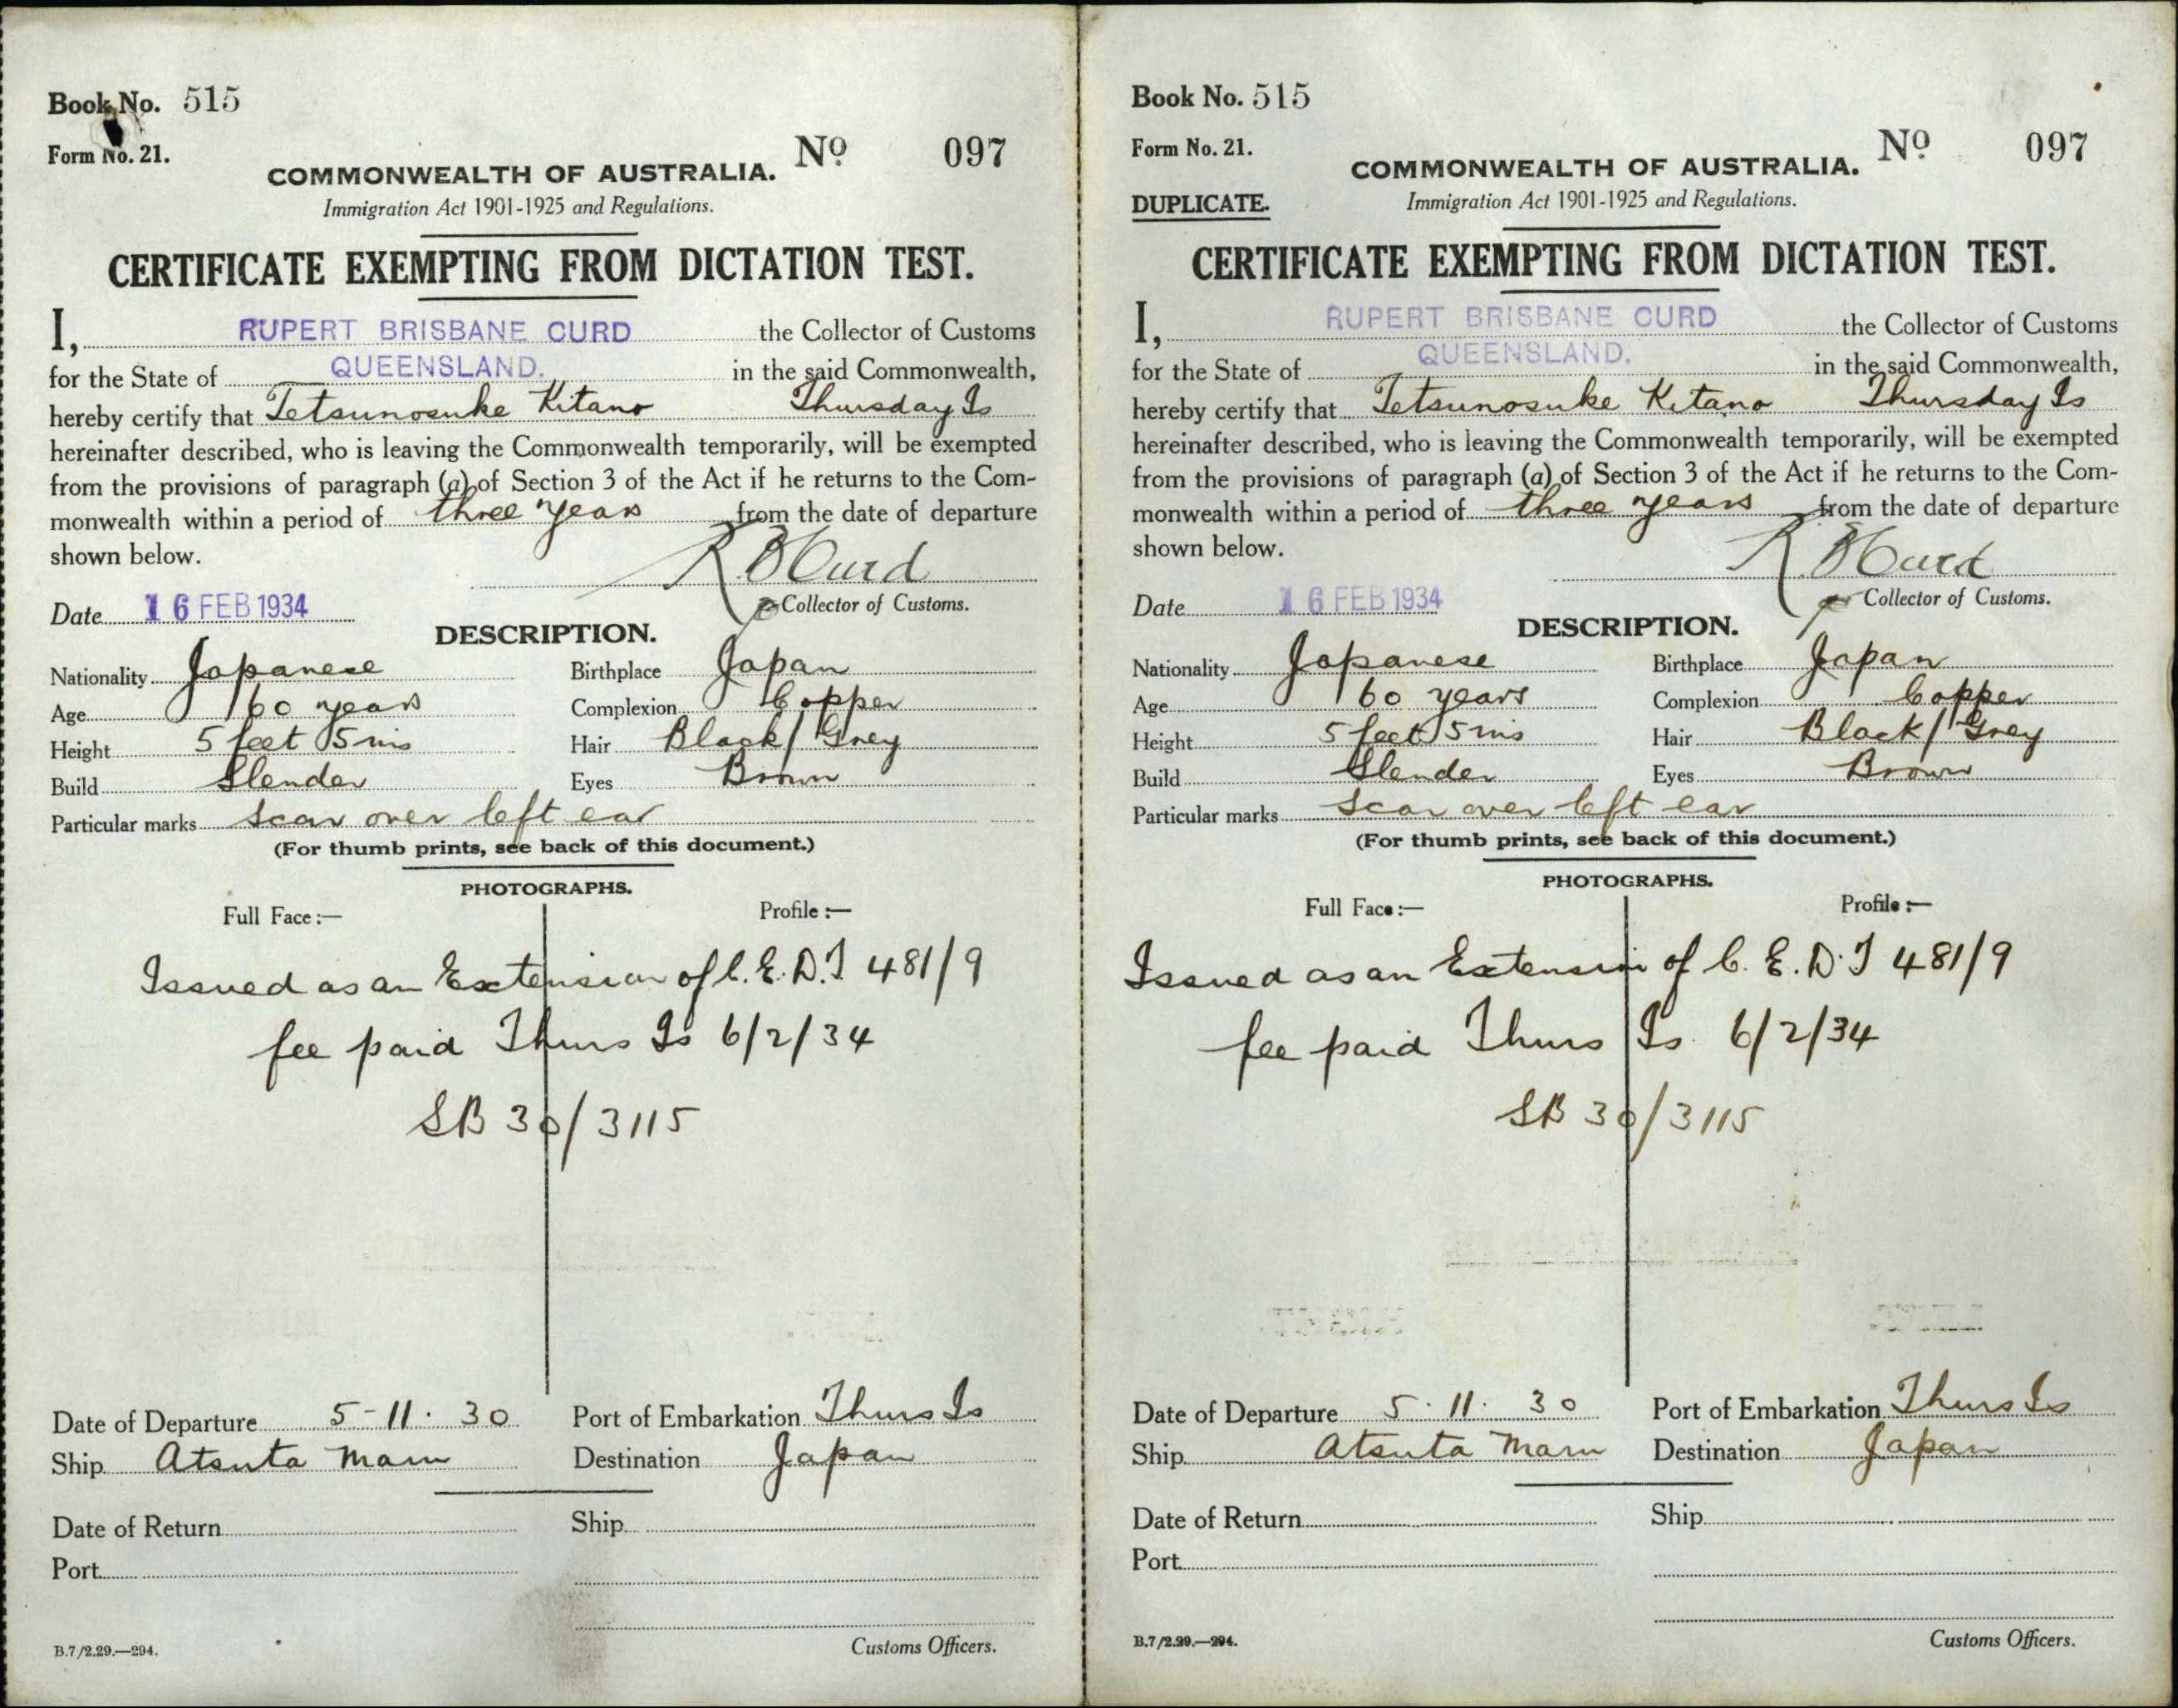 Book No. 515
Form No. 21.
COMMONWEALTH OF AUSTRALIA. No 097
Immigration Act 1901-1925 and Regulations.
CERTIFICATE EXEMPTING FROM DICTATION TEST.
I, RUPERT BRISBANE CURD the Collector of Customs
for the State of QUEENSLAND. in the said Commonwealth,
hereby certify that Tetsunosuke Kitano Thursday Is
hereinafter described, who is leaving the Commonwealth temporarily, will be exempted
from the provisions of paragraph (a) of Section 3 of the Act if he returns to the Com-
monwealth within a period of three years from the date of departure
shown below.
R B Curd
Date 16 FEB 1934 Collector of Customs.
DESCRIPTION.
Nationality Japanese Birthplace Japan
Age 60 years Complexion Copper
Height 5 feet 5 ins Hair Black/Grey
Build Slender Eyes Brown
Particular marks Scar over left ear
(For thumb prints, see back of this document.)
PHOTOGRAPHS.
Full Face :— Profile :—
Issued as an Extension of C.E.D.T 481/9
fee paid Thurs Is 6/2/34
SB 30/3115
Date of Departure 5-11. 30 Port of Embarkation Thurs Is
Ship Atsuta Maru Destination Japan
Date of Return Ship
Port
B.7/2.29.—294. Customs Officers.
Book No. 515
Form No. 21.
DUPLICATE.
COMMONWEALTH OF AUSTRALIA. No 097
Immigration Act 1901-1925 and Regulations.
CERTIFICATE EXEMPTING FROM DICTATION TEST.
I, RUPERT BRISBANE CURD the Collector of Customs
for the State of QUEENSLAND. in the said Commonwealth,
hereby certify that Tetsunosuke Kitano Thursday Is
hereinafter described, who is leaving the Commonwealth temporarily, will be exempted
from the provisions of paragraph (a) of Section 3 of the Act if he returns to the Com-
monwealth within a period of three years from the date of departure
shown below.
R B Curd
Date 16 FEB 1934 Collector of Customs.
DESCRIPTION.
Nationality Japanese Birthplace Japan
Age 60 years Complexion Copper
Height 5 feet 5 ins Hair Black/Grey
Build Slender Eyes Brown
Particular marks Scar over left ear
(For thumb prints, see back of this document.)
PHOTOGRAPHS.
Full Face :— Profile :—
Issued as an Extension of C.E.D.T 481/9
fee paid Thurs Is. 6/2/34
SB 30/3115
Date of Departure 5. 11. 30 Port of Embarkation Thurs Is
Ship Atsuta Maru Destination Japan
Date of Return Ship
Port
B.7/2.29.—294. Customs Officers.